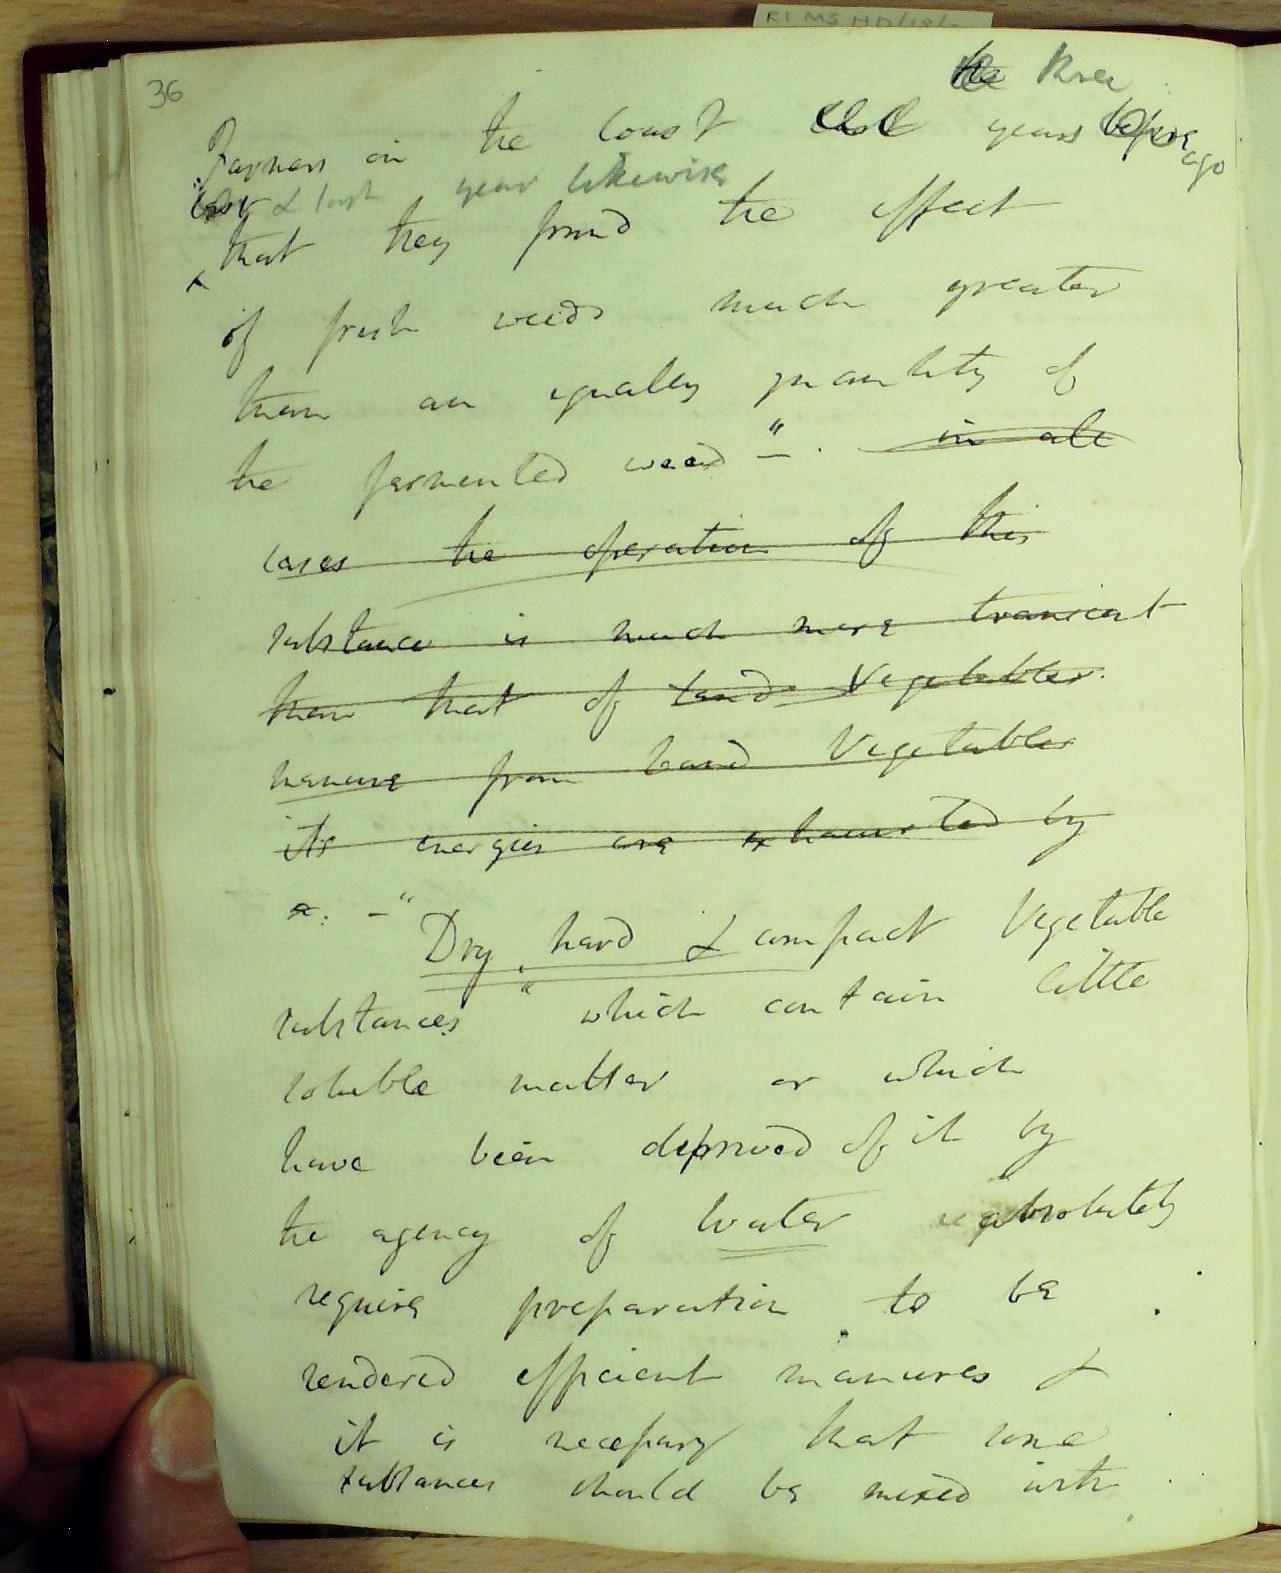 RI MS HD/19/
36
the three
Farmers on the Coast years before ago
& last year likewise
that they found the effect
of fresh weeds much greater
than an equally quantity of
the fermented weed" –. in all
cases the operation of this
substance is much more transient
than that of land Vegetables.
manure from land Vegetables
its energies are exhausted by
a: –" Dry, hard & compact Vegetable
substances" which contain little
soluble matter or which
have been deprived of it by
the agency of water absolutely
require preparation to be
rendered efficient manures &
it is necessary that some
substances should be mixed with